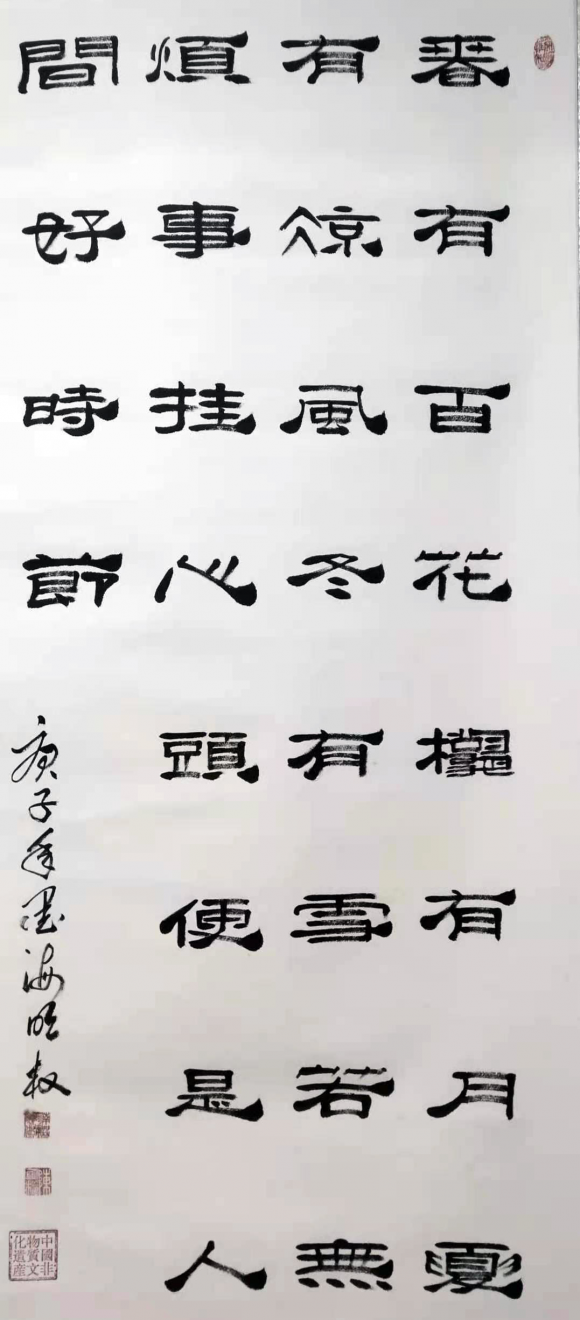 春有百花龝有月夏
有凉風冬有雪若無
煩事挂心頭便是人
間好時節
庚子年墨海
中國非
物質文
化遺産